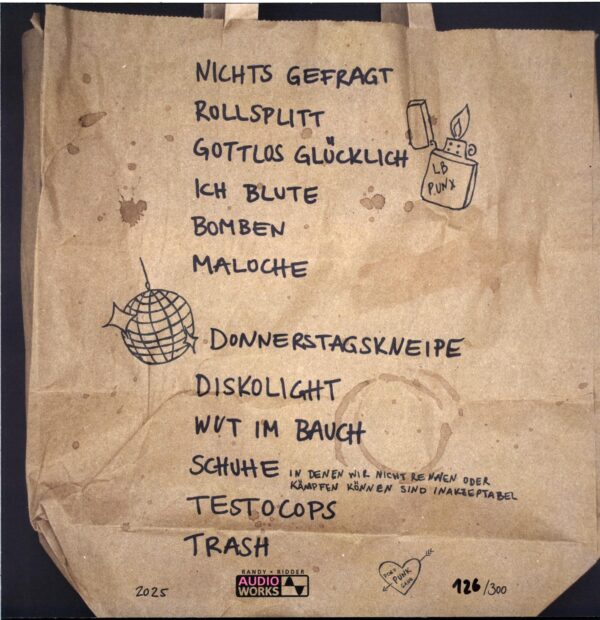 NICHTS GEFRAGT
ROLLSPLITT
GOTTLOS GLÜCKLICH
LB
PUNX
ICH BLUTE
BOMBEN
MALOCHE
DONNERSTAGSKNEIPE
DISKOLIGHT
WUT IM BAUCH
SCHUHE IN DENEN WIR NICHT RENNEN ODER
KÄMPFEN KÖNNEN SIND INAKZEPTABEL
TESTOCOPS
TRASH
2025
RANDY • RIDDER
AUDIO
WORKS
PUNK
126/300